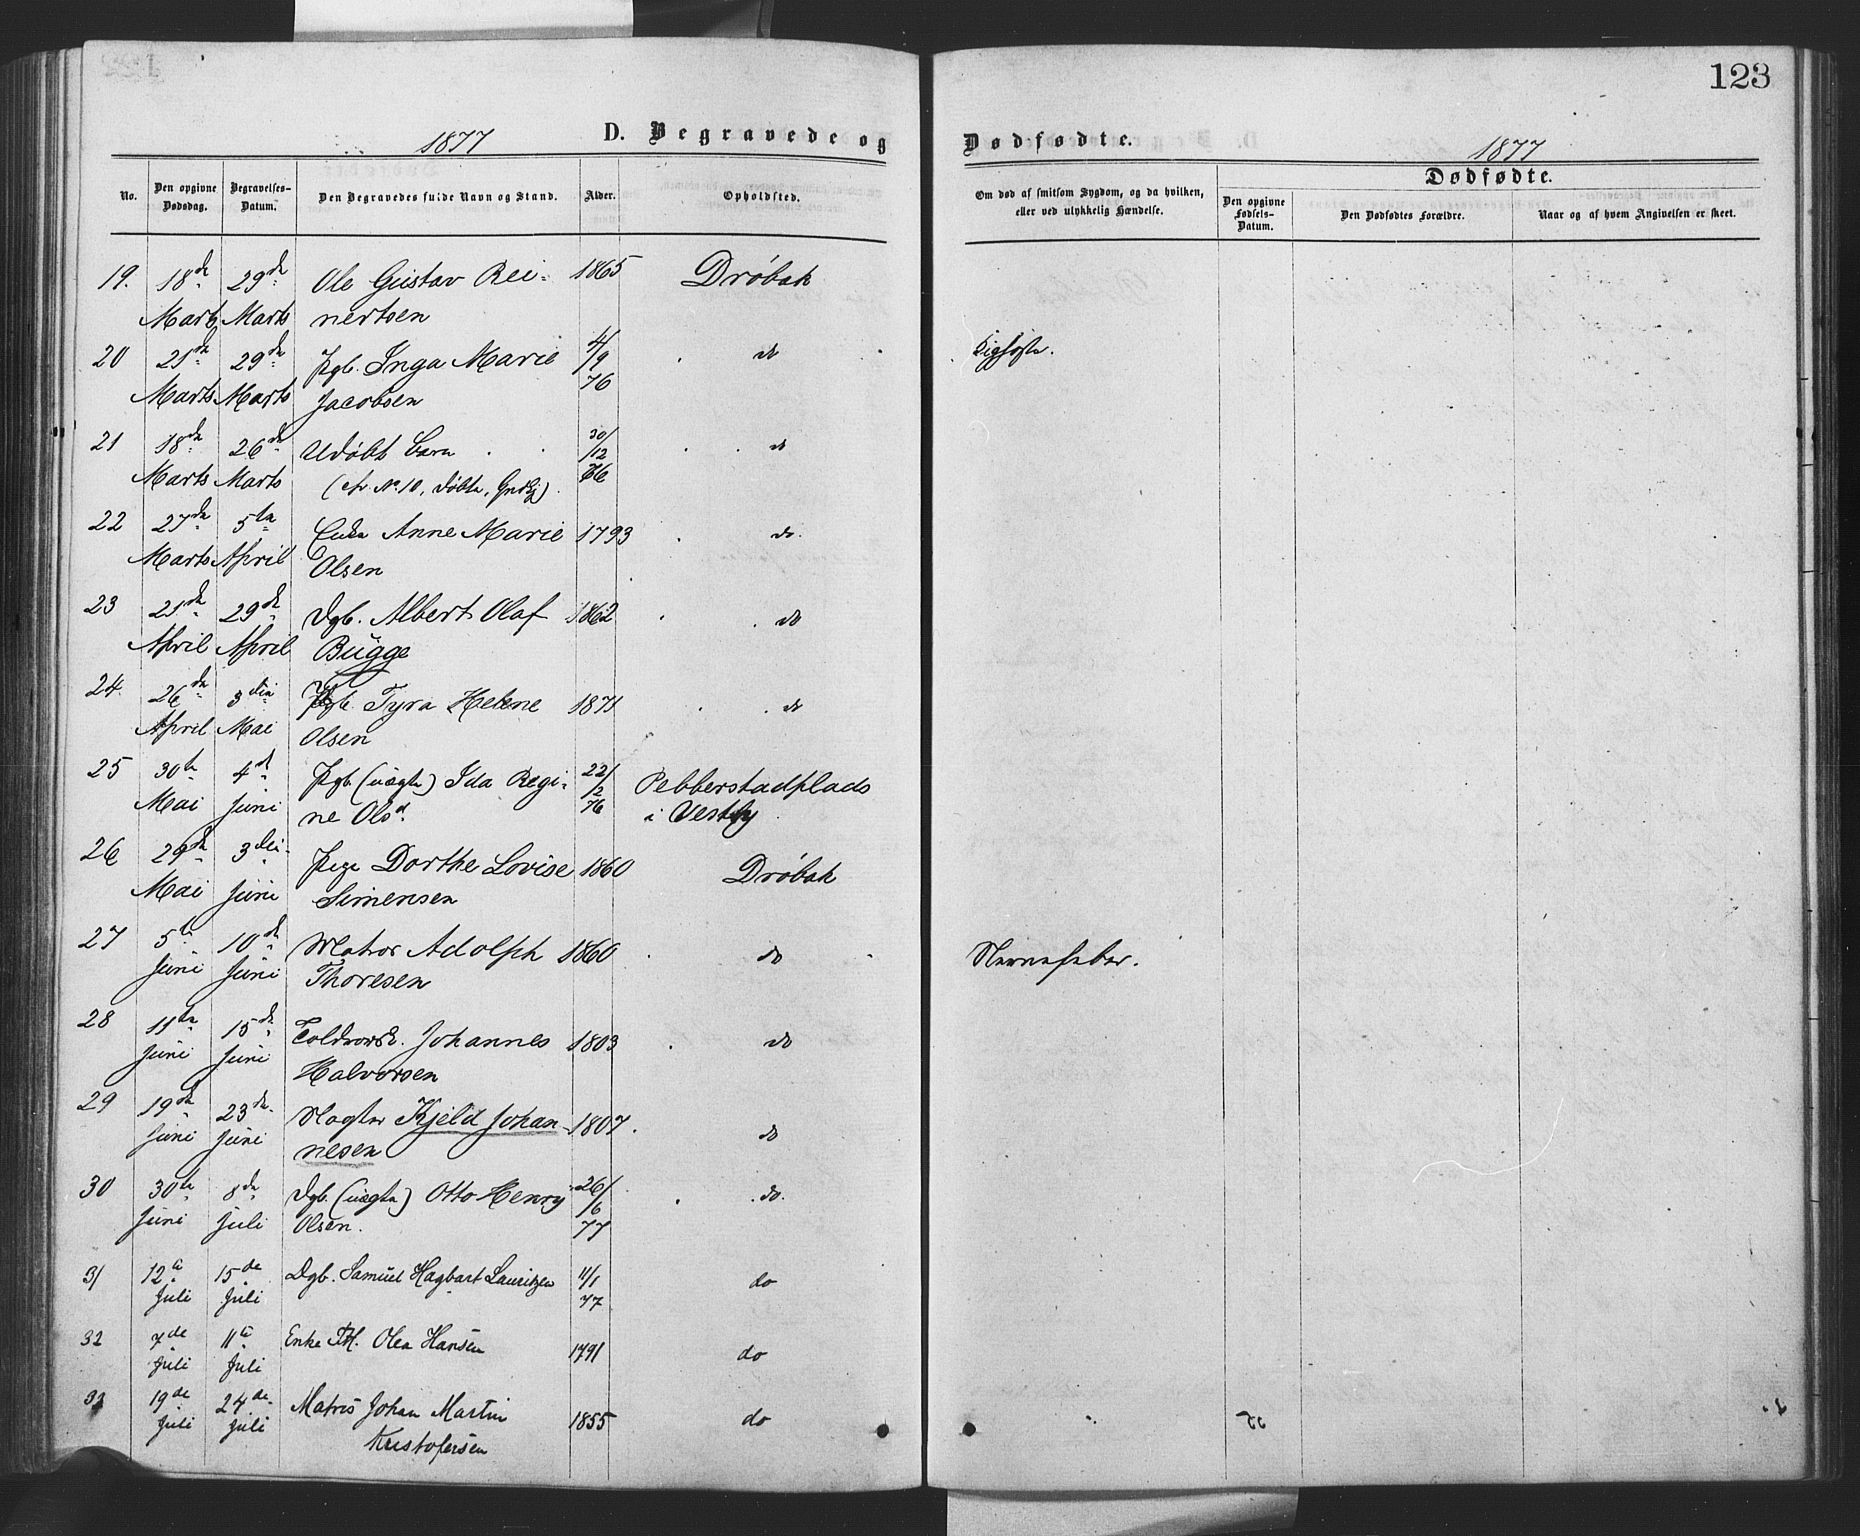 123
1877 D. Begravede og Dødfødte. 1877
Dødfødte.
No.
Den opgivne Dødsdag.
Begravelses-Datum.
Den Begravedes fulde Navn og Stand.
Alder.
Opholdsted.
Om død af smitsom Sygdom, og da hvilken, eller ved ulykkelig Hændelse.
Den opgivne Fødsels-Datum.
Den Dødfødtes Forældre.
Naar og af hvem Angivelsen er skeet.
19. 18de 29de Ole Gustav Rei- 1865 Drøbak
Marts Marts nertsen
20 21de 29de Pgb. Inga Marie 4/9 76 do Kighoste.
Marts Marts Jacobsen
21 18de 26de Udøbt Barn 30/12 76 do
Marts Marts (cfr No 10, døbte,
22 27de 5te Enke Anne Marie 1793 do.
Marts April Olsen
23 21de 29de Dgb. Albert Olaf 1862 do
April April Bugge
24. 26de 3die Pgb. Tyra Helene 1871 do
April Mai Olsen
25 30te 4de Pgb. (uægte) Ida Regi- 22/2 76 Pebberstadplads
Mai Juni ne Olsd. i Vestby
26 29de 3die Pige Dorthe Lovise 1860 Drøbak
Mai Juni Simensen
27 5te 10de Matros Adolph 1860 do Nervefeber.
Juni Juni Thoresen
28 11te 15de Toldrorsk. Johannes 1803 do
Juni Juni Halvorsen
29 19de 23de Slagter Kjeld Johan- 1807 do
Juni Juni nesen
30 30te 8de Dgb. (uægte) Otto Henry 26/6 77 do.
Juni Juli Olsen.
31 12te 15de Dgb. Samuel Hagbart Lauritzen 11/1 77 do
Juli Juli
32 7de 11te Enke Olea Hansen 1791 do
Juli Juli
33 19de 24de Matros Johan Martin 1855 do
Juli Juli Kristofersen